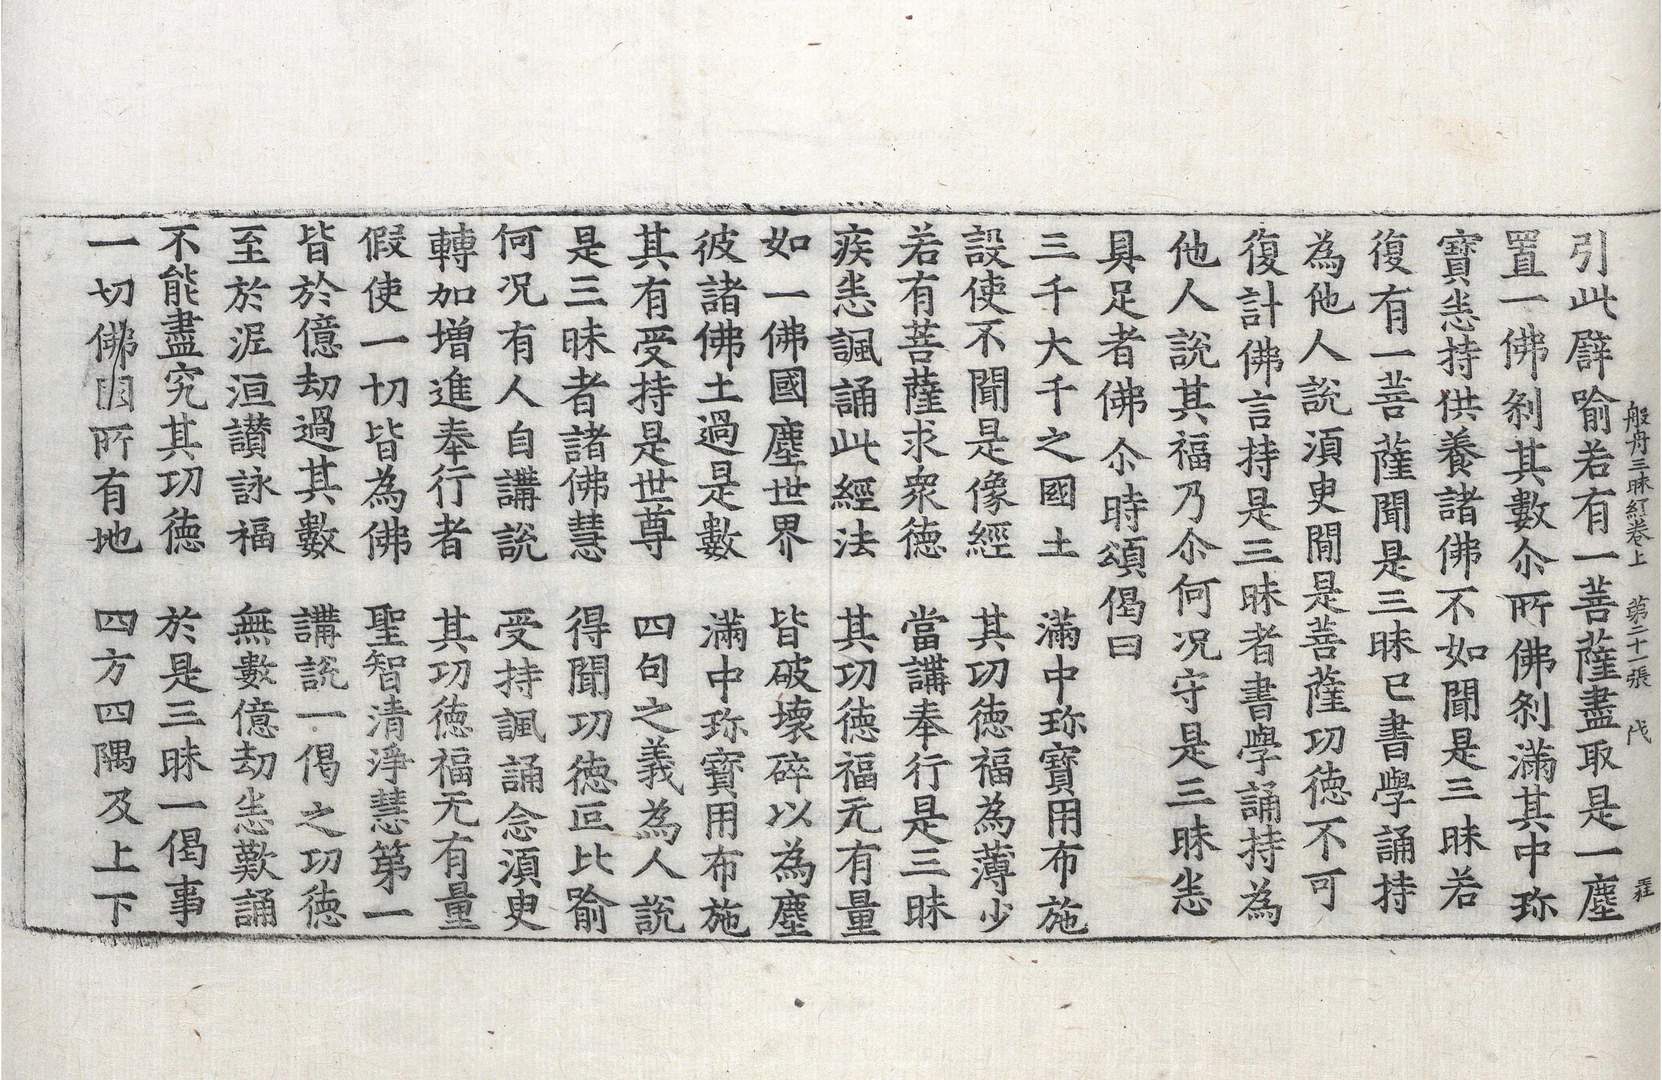 般舟三昧経卷上 第二十一張 戊
引此譬喻若有一菩薩盡取是一塵
置一佛剎其數尒所佛剎滿其中珎
寶悉持供養諸佛不如聞是三昧若
復有一菩薩聞是三昧已書學誦持
為他人說須臾閒是菩薩功德不可
復計佛言持是三昧者書學誦持為
他人說其福乃尒何况守是三昧悉
具足者佛尒時頌偈曰
三千大千之國土 滿中珎寶用布施
設使不聞是像經 其功德福為薄少
若有菩薩求眾德 當講奉行是三昧
疾悉諷誦此經法 其功德福无有量
如一佛國塵世界 皆破壞碎以為塵
彼諸佛土過是數 滿中珎寶用布施
其有受持是世尊 四句之義為人說
是三昧者諸佛慧 得聞功德叵比喻
何况有人自講說 受持諷誦念須臾
轉加增進奉行者 其功德福无有量
假使一切皆為佛 聖智清淨慧第一
皆於億劫過其數 講說一偈之功德
至於泥洹讃詠福 無數億劫悉歎誦
不能盡究其功德 於是三昧一偈事
一切佛國所有地 四方四隅及上下